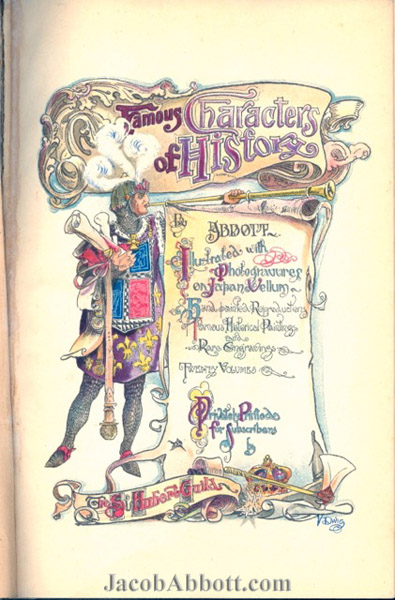 Famous Characters
of History
By
ABBOTT
Illustrated with
Photogravures
on Japan Vellum
Hand painted Reproductions
Famous Historical Paintings
and
Rare Engravings
TWENTY VOLUMES
Privately Printed
for Subscribers
The St Hubert Guild
JacobAbbott.com